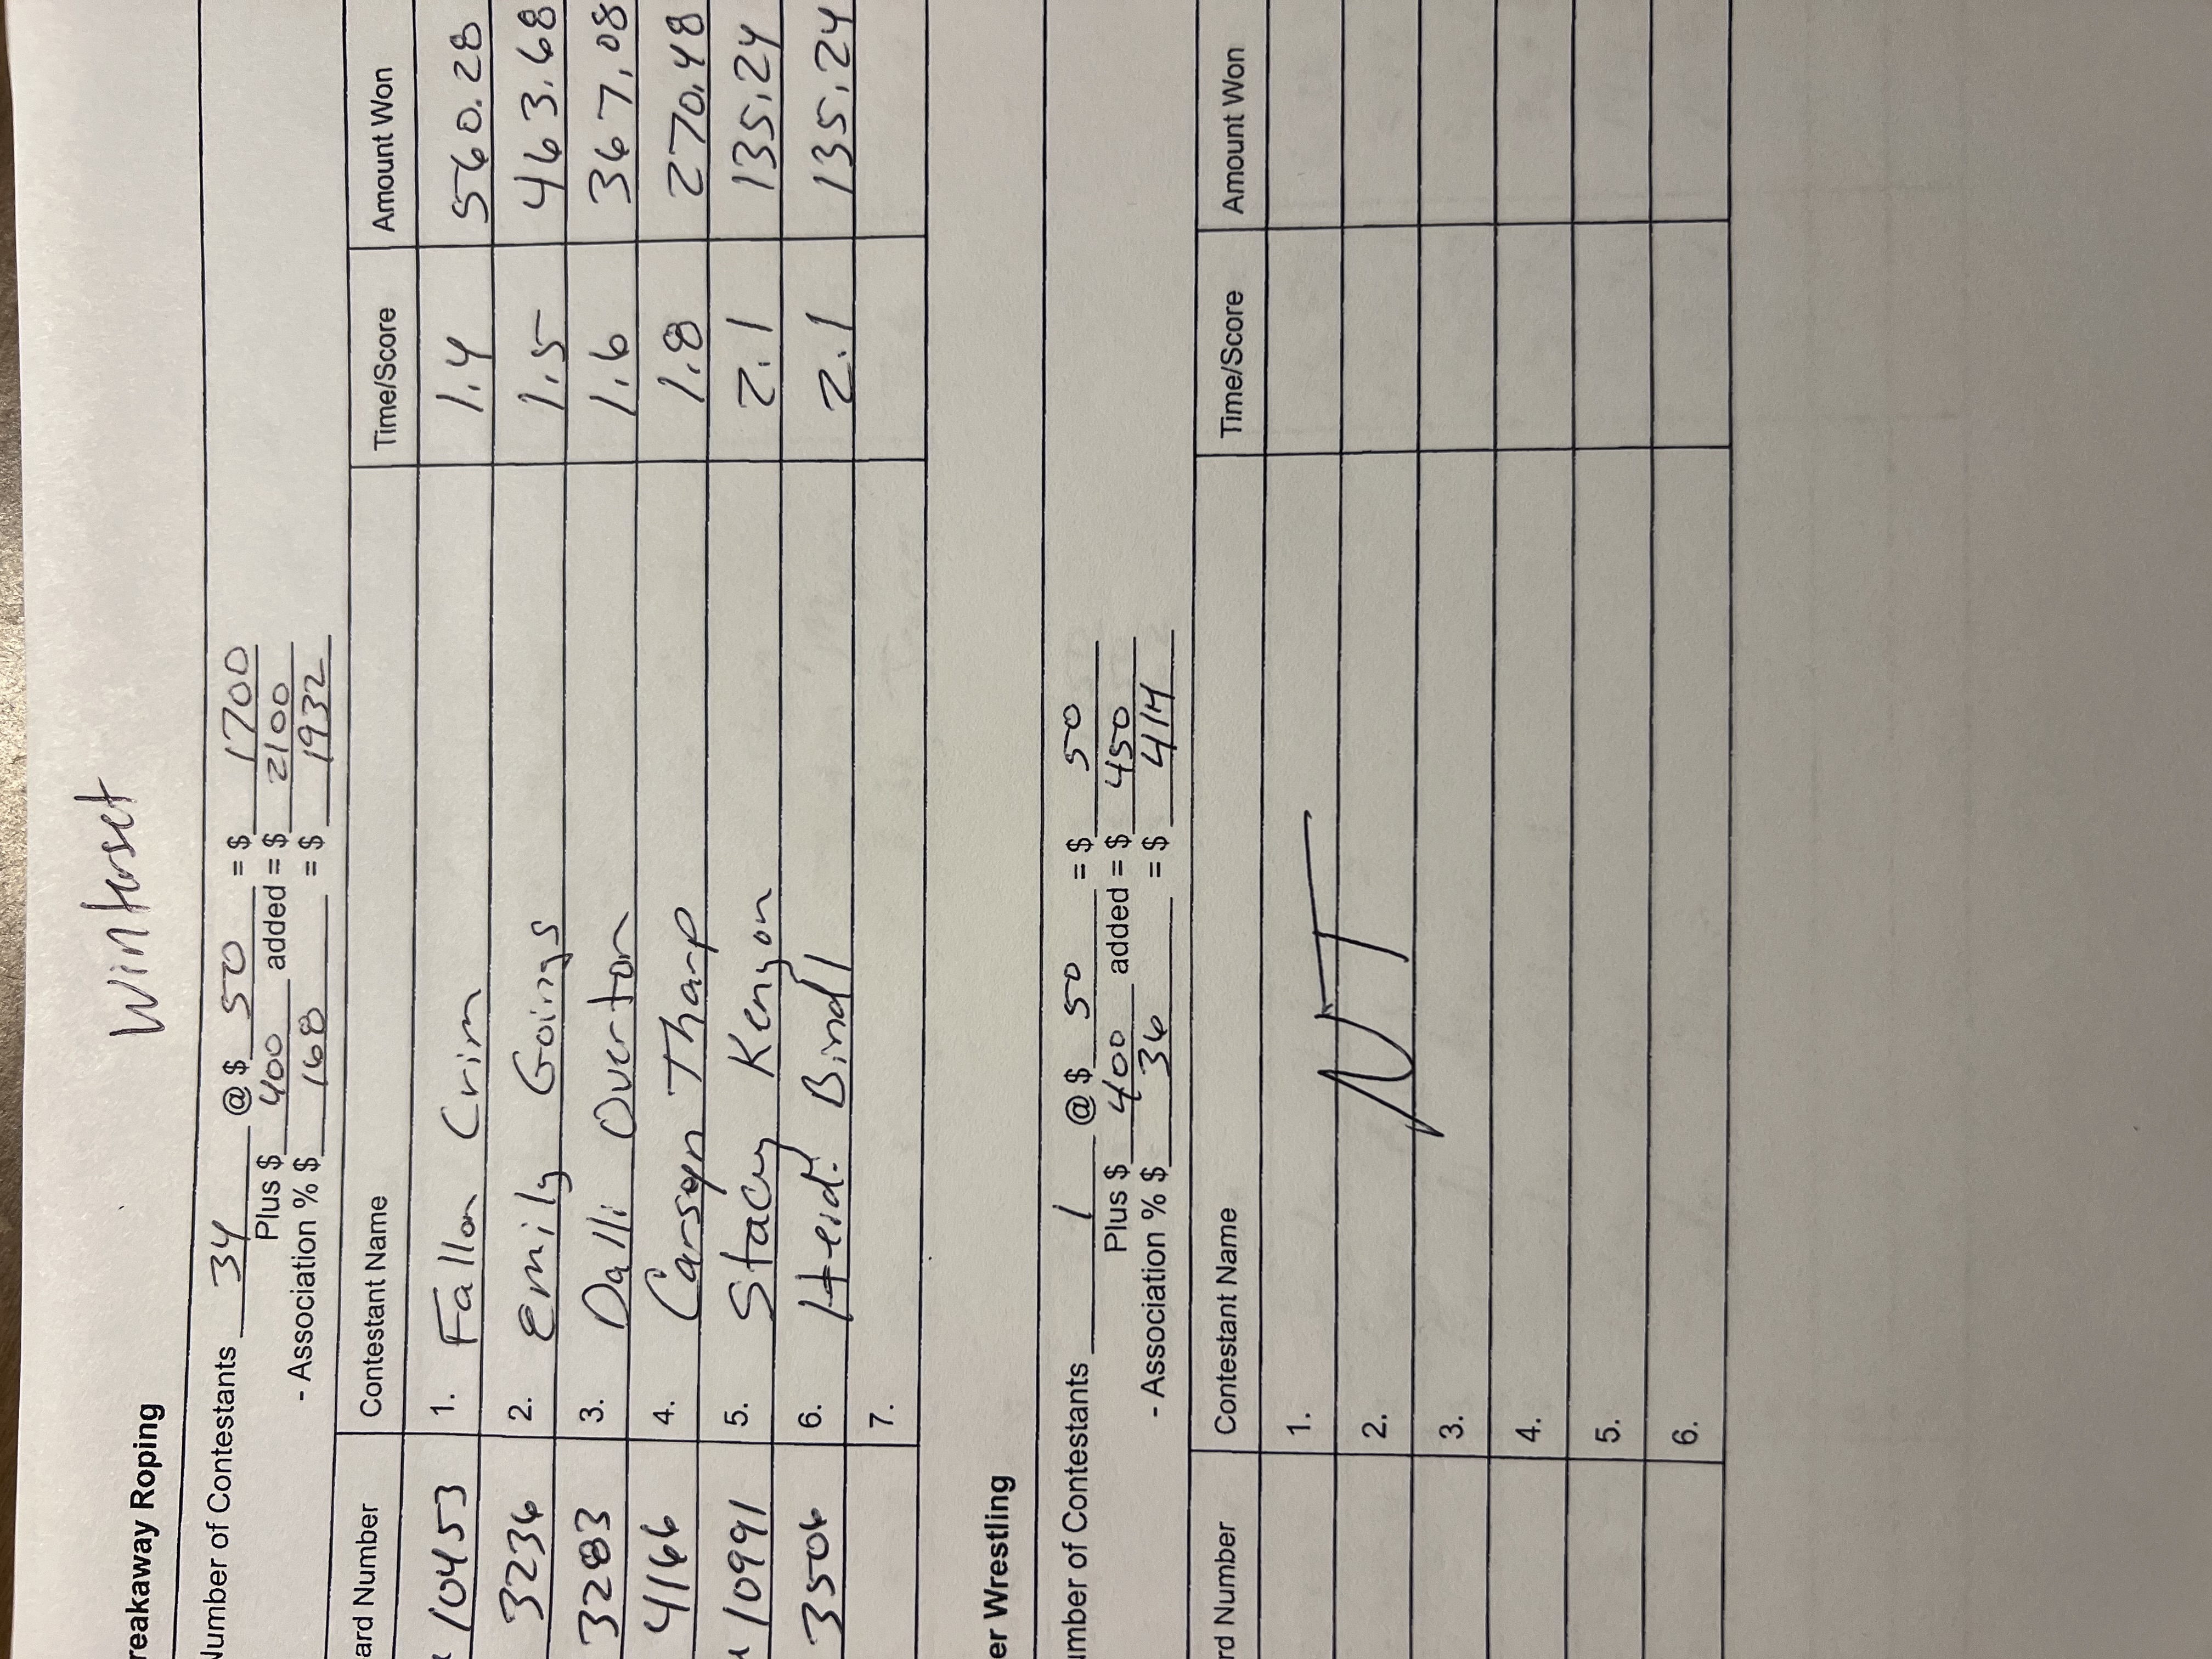 Winterset
reakaway Roping
Number of Contestants 34 @ $ 50 = $ 1700
Plus $ 400 added = $ 2100
- Association % $ 168 = $ 1932
ard Number Contestant Name Time/Score Amount Won
10453 1. Fallon Crim 1.4 560.28
3236 2. Emily Goings 1.5 463.68
3283 3. Dalli Overton 1.6 367.08
4166 4. Carsyn Tharp 1.8 270.48
10991 5. Stacy Kenyon 2.1 135.24
3506 6. Heidi Bindl 2.1 135.24
7.
er Wrestling
umber of Contestants 1 @ $ 50 = $ 50
Plus $ 400 added = $ 450
- Association % $ 36 = $ 414
rd Number Contestant Name Time/Score Amount Won
1.
2. NT
3.
4.
5.
6.